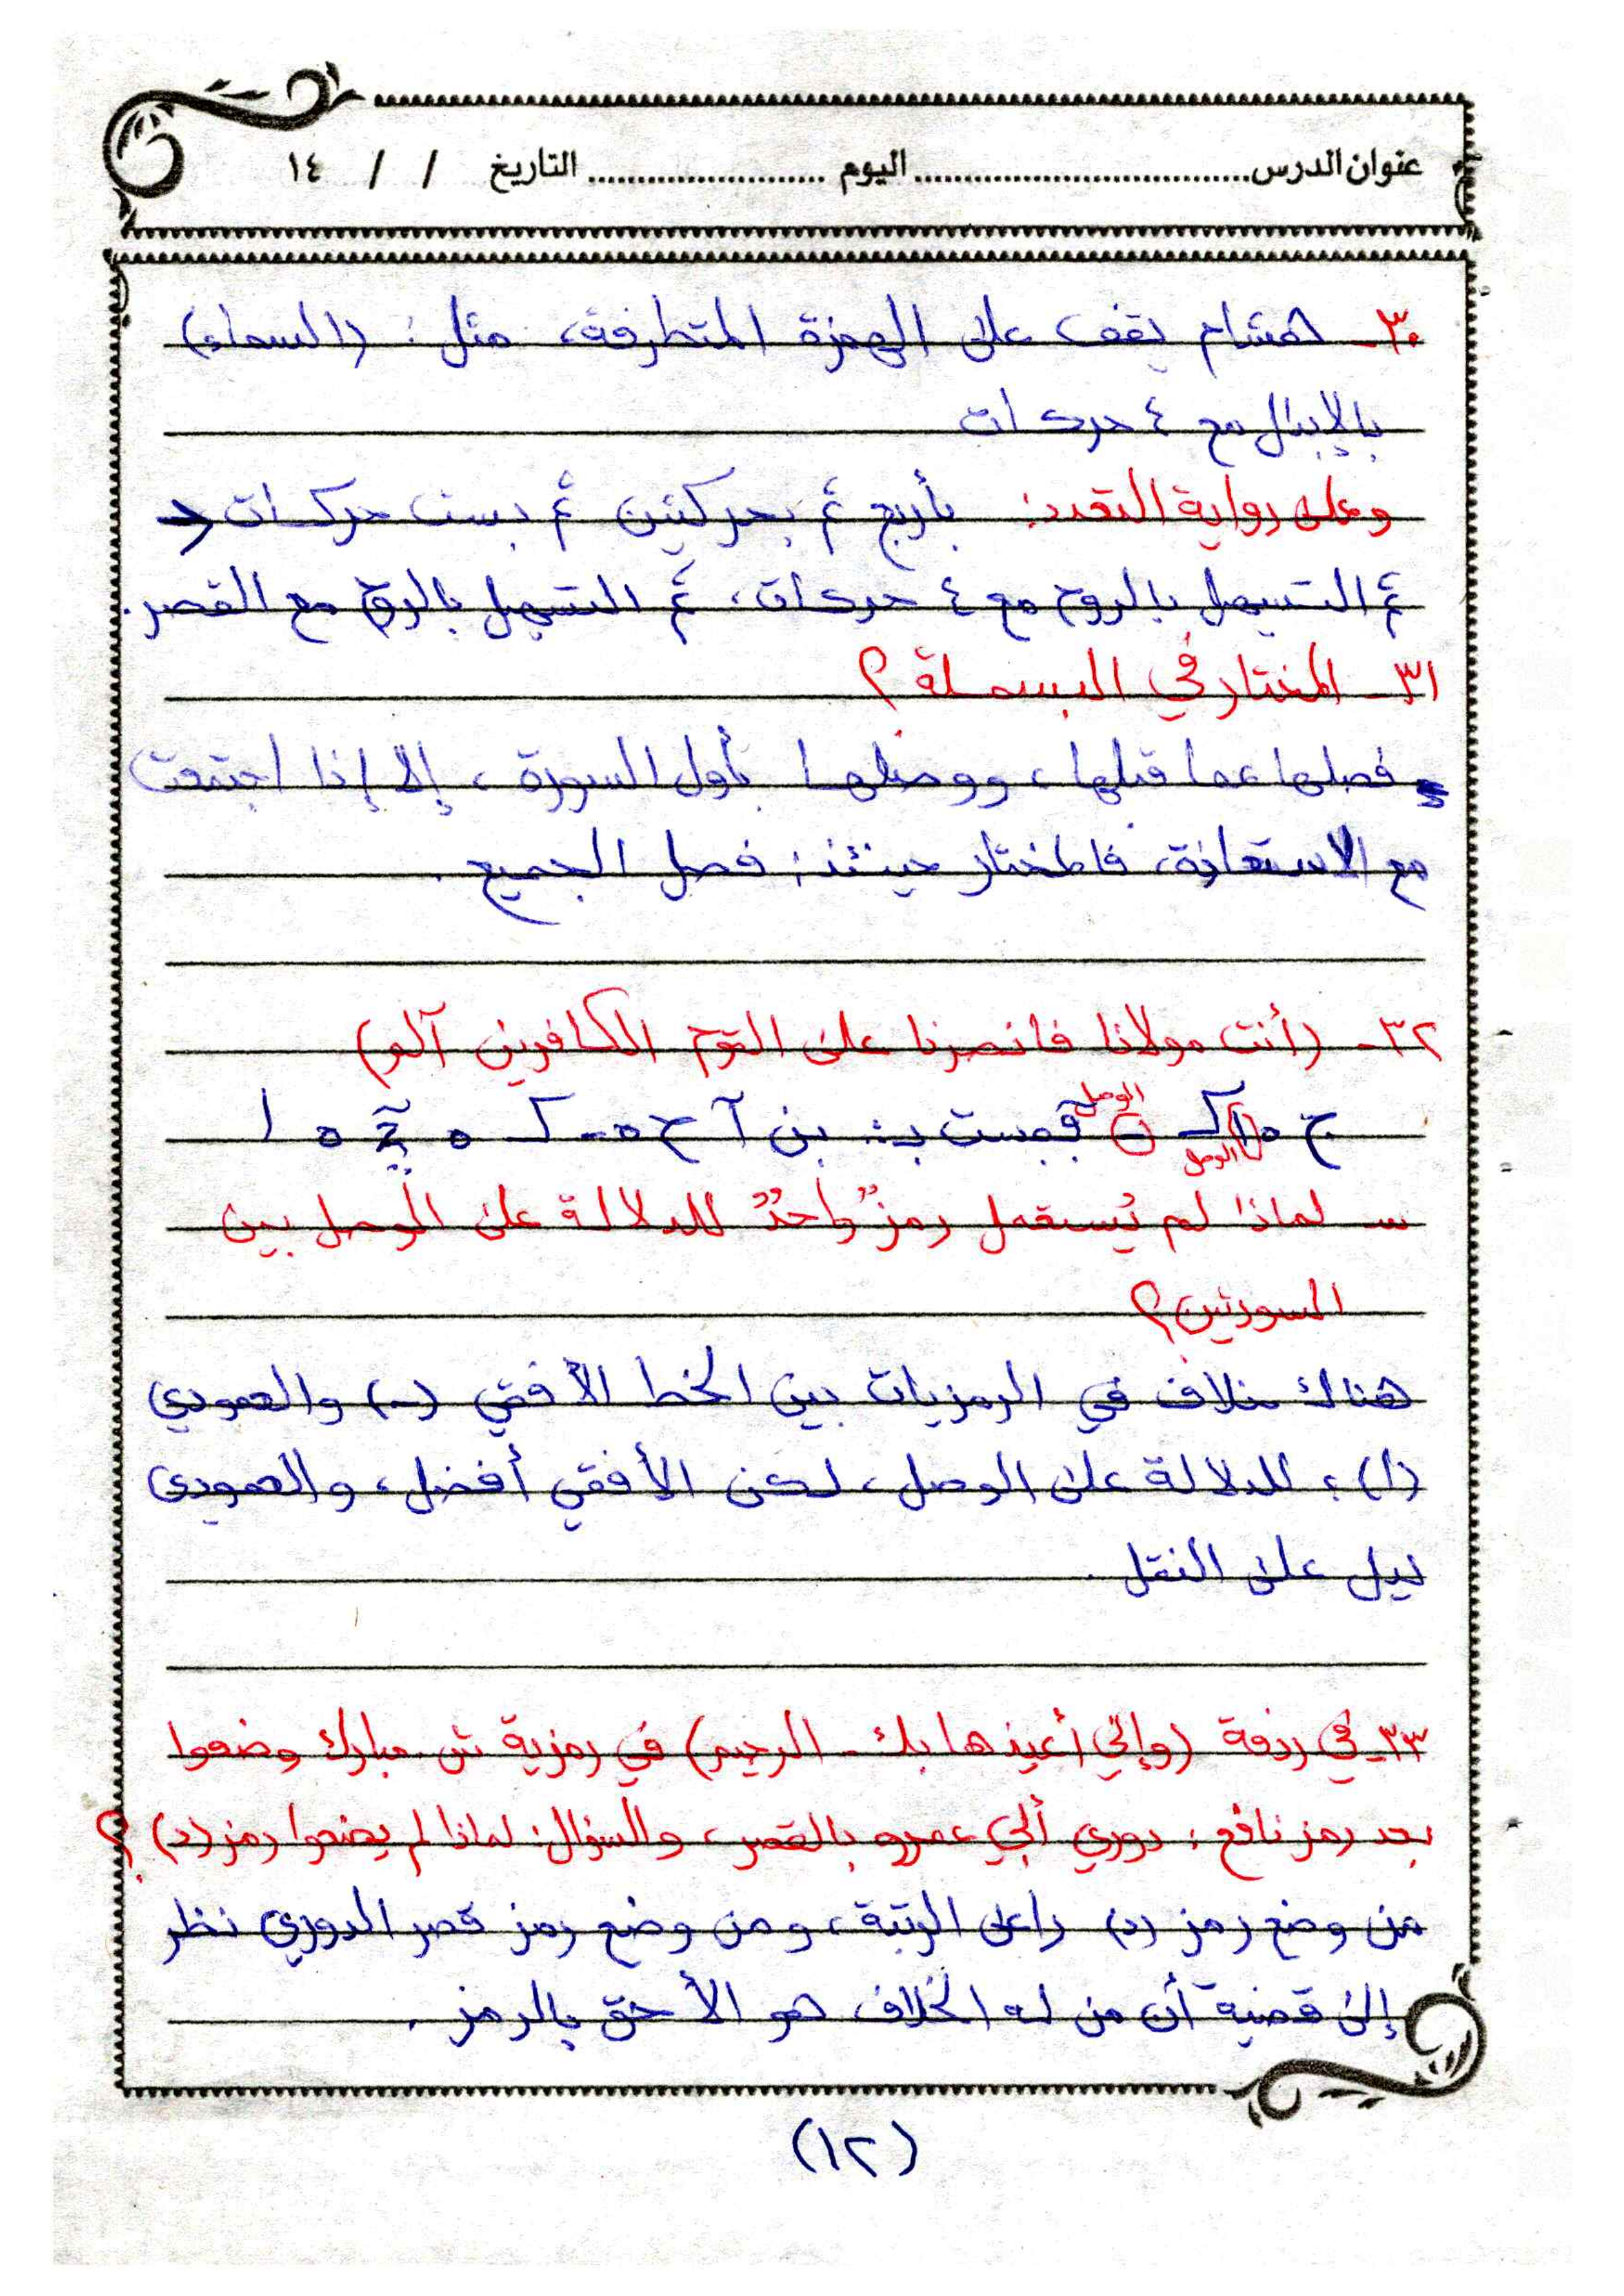 عنوان الدرس.................................اليوم.......................التاريخ / / ١٤
٣٠- هشام يقف على الهمزة المتطرفة، مثل: (السماء)
بالإبدال مع ٤ حركات
وعلى رواية التعدد: بأربع ثم بحركتين ثم بست حركات
ثم التسهيل بالروم مع ٤ حركات، ثم التسهيل بالروم مع القصر.
٣١- المختار في البسملة؟
فصلها عما قبلها، ووصلها بأول السورة، إلا إذا اجتمعت
مع الاستعاذة، فالمختار حينئذ: فصل الجميع.
٣٢- (أنت مولانا فانصرنا على القوم الكافرين آلم)
الوصل
الوصل
س- لماذا لم يُستعمل رمزٌ واحدٌ للدلالة على الوصل بين
السورتين؟
هناك خلاف في الرمزيات بين الخط الأفقي (-) والعمودي
(ا)؛ للدلالة على الوصل، لكن الأفقي أفضل، والعمودي
ليدل على النقل.
٣٣- في ردفة (وإني أعيذها بك - الرجيم) في رمزية ش. مبارك وضعوا
بعد رمز نافع: دوري أبي عمرو بالقصر، والسؤال: لماذا لم يضعوا رمز (د)؟
من وضع رمز (د) راعى الرتبة، ومن وضع رمز قصر الدوري نظر
إلى قضية أن من له الخلاف هو الأحق بالرمز.
(١٢)